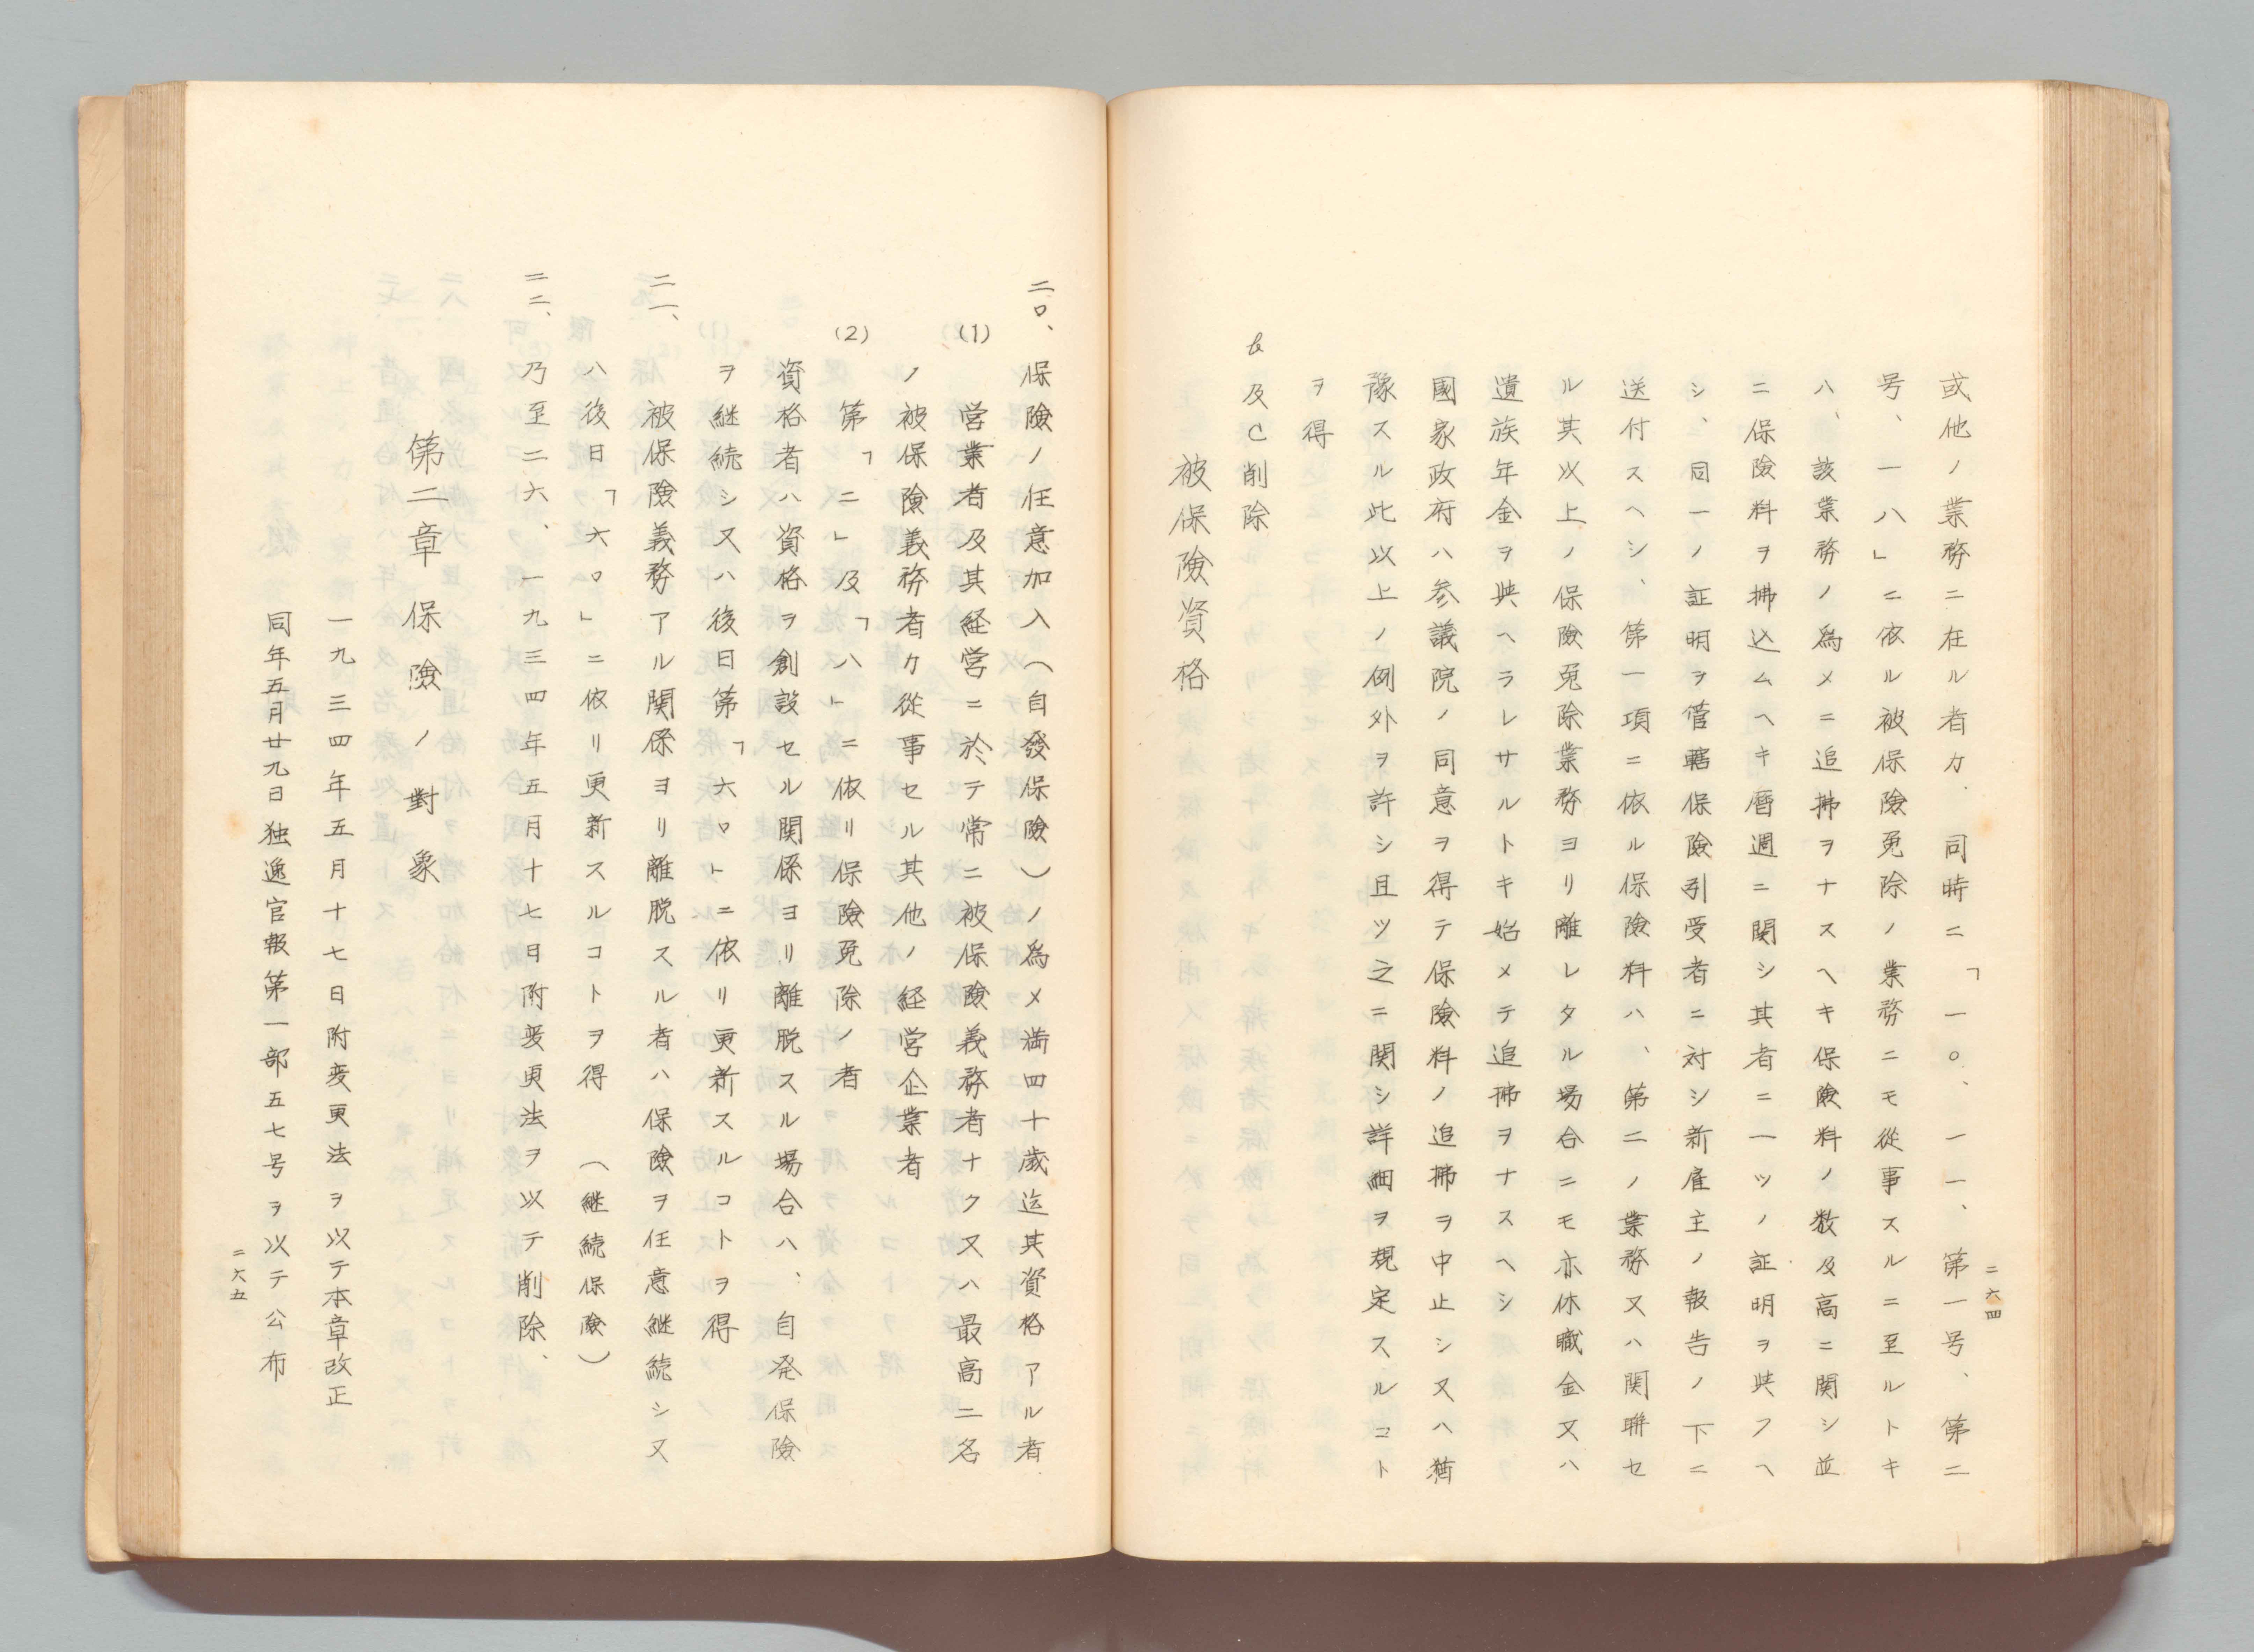 或他ノ業務ニ在ル者カ、同時ニ「一〇、一一、第一号、第二
号、一八」ニ依ル被保險免除ノ業務ニモ從事スルニ至ルトキ
ハ、該業務ノ爲メニ追拂ヲナスヘキ保険料ノ数及高ニ関シ並
ニ保險料ヲ拂込ムヘキ暦週ニ関シ其者ニ一ツノ証明ヲ典フヘ
シ、同一ノ証明ヲ管轄保險引受者ニ対シ新雇主ノ報告ノ下ニ
送付スヘシ、第一項ニ依ル保險料ハ、第二ノ業務又ハ関聯セ
ル其以上ノ保險免除業務ヨリ離レタル場合ニモ亦休職金又ハ
遺族年金ヲ典ヘラレサルトキ始メテ追拂ヲナスヘシ
國家政府ハ参議院ノ同意ヲ得テ保險料ノ追拂ヲ中止シ又ハ猶
豫スル此以上ノ例外ヲ許シ且ツ之ニ関シ詳細ヲ規定スルコト
ヲ得
b及C削除
被保險資格
二六四
二〇、保險ノ任意加入（自發保險）ノ爲メ満四十歳迄其資格アル者
(1) 営業者及其経営ニ於テ常ニ被保険義務者ナク又ハ最高二名
ノ被保險義務者カ從事セル其他ノ経営企業者
(2) 第「二」及「八」ニ依リ保險免除ノ者
資格者ハ資格ヲ創設セル関係ヨリ離脱スル場合ハ、自発保險
ヲ継続シ又ハ後日第「六〇」ニ依リ更新スルコトヲ得
二一、被保險義務アル関係ヨリ離脱スル者ハ保險ヲ任意継続シ又
ハ後日「六〇」ニ依リ更新スルコトヲ得（継続保險）
二二、乃至二六、一九三四年五月十七日附変更法ヲ以テ削除、
第二章 保險ノ對象
一九三四年五月十七日附変更法ヲ以テ本章改正
同年五月廿九日独逸官報第一部五七号ヲ以テ公布
二六五